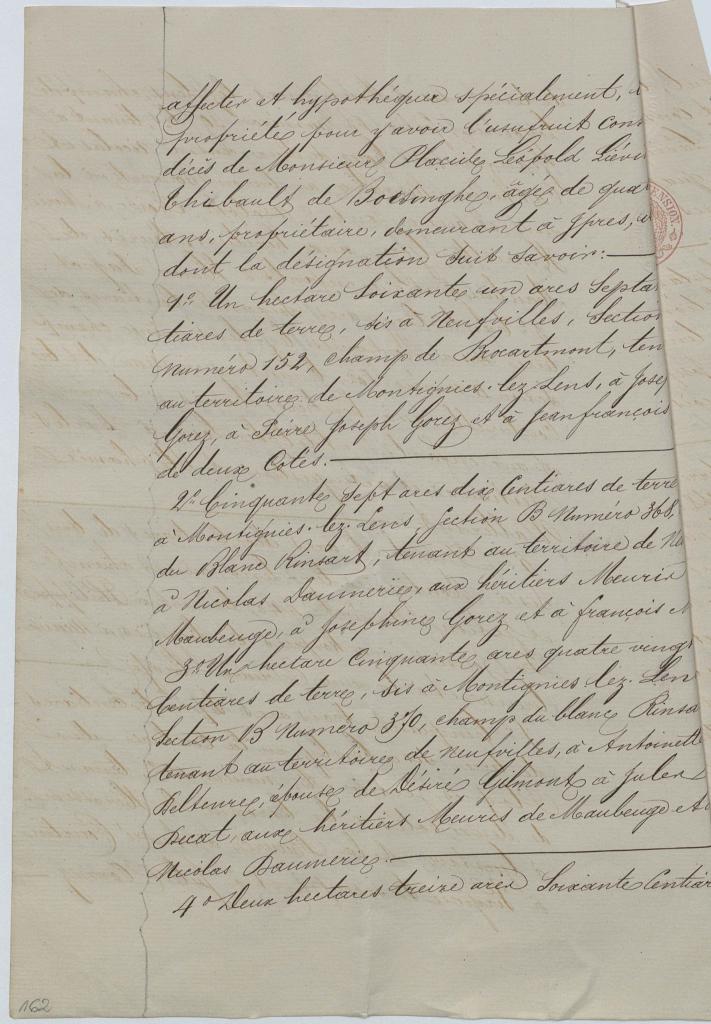 affecter et hypothéquer spécialement,
propriétés pour y avoir l'usufruit con
décès de Monsieur Placide Léopold Liévi
Thibault de Boesinghe, âgé de qua
ans, propriétaire, demeurant à Ypres,
dont la désignation suit savoir:
1° Un hectare Soixante un ares Septa
tiares de terre, sis à Neufvilles, Section
Numéro 152, champ de Brocartmont, ten
au territoire de Montignies-lez-Lens, à Jose
Gorez, à Pierre Joseph Gorez et à Jeanfrançois
de deux Cotés.
2° Cinquante Sept ares dix Centiares de terre
à Montignies-lez-Lens, Section B Numéro 368,
du Blanc Rinsart, tenant au territoire de Ne
à Nicolas Daumerie, aux héritiers Meuris
Maubeuge, à Josephine Gorez et à françois M
3° Un hectare Cinquante ares quatre vingt
Centiares de terre, sis à Montignies lez-Len
Section B Numéro 370, champ du blanc Rinsa
tenant au territoire de Neufvilles, à Antoinette
Deltenre, épouse de Désiré Gilmont, à Jules
Decat, aux héritiers Meuris de Maubeuge et
Nicolas Daumerie.
4° Deux hectares treize ares Soixante Centiar
ENSION
162